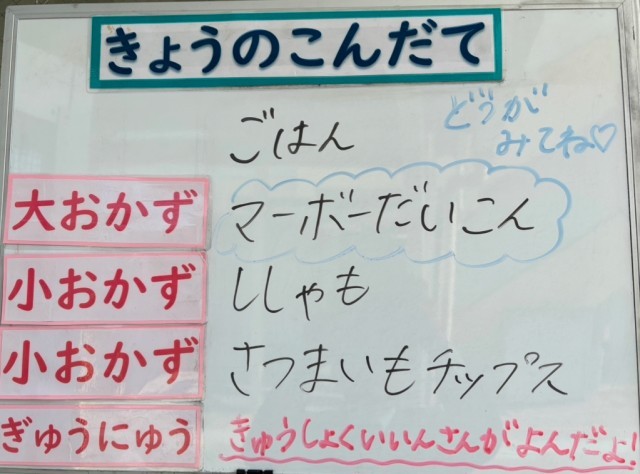 きょうのこんだて
どうが
みてね♡
ごはん
大おかず マーボーだいこん
小おかず ししゃも
小おかず さつまいもチップス
ぎゅうにゅう きゅうしょくいいんさんがよんだよ!